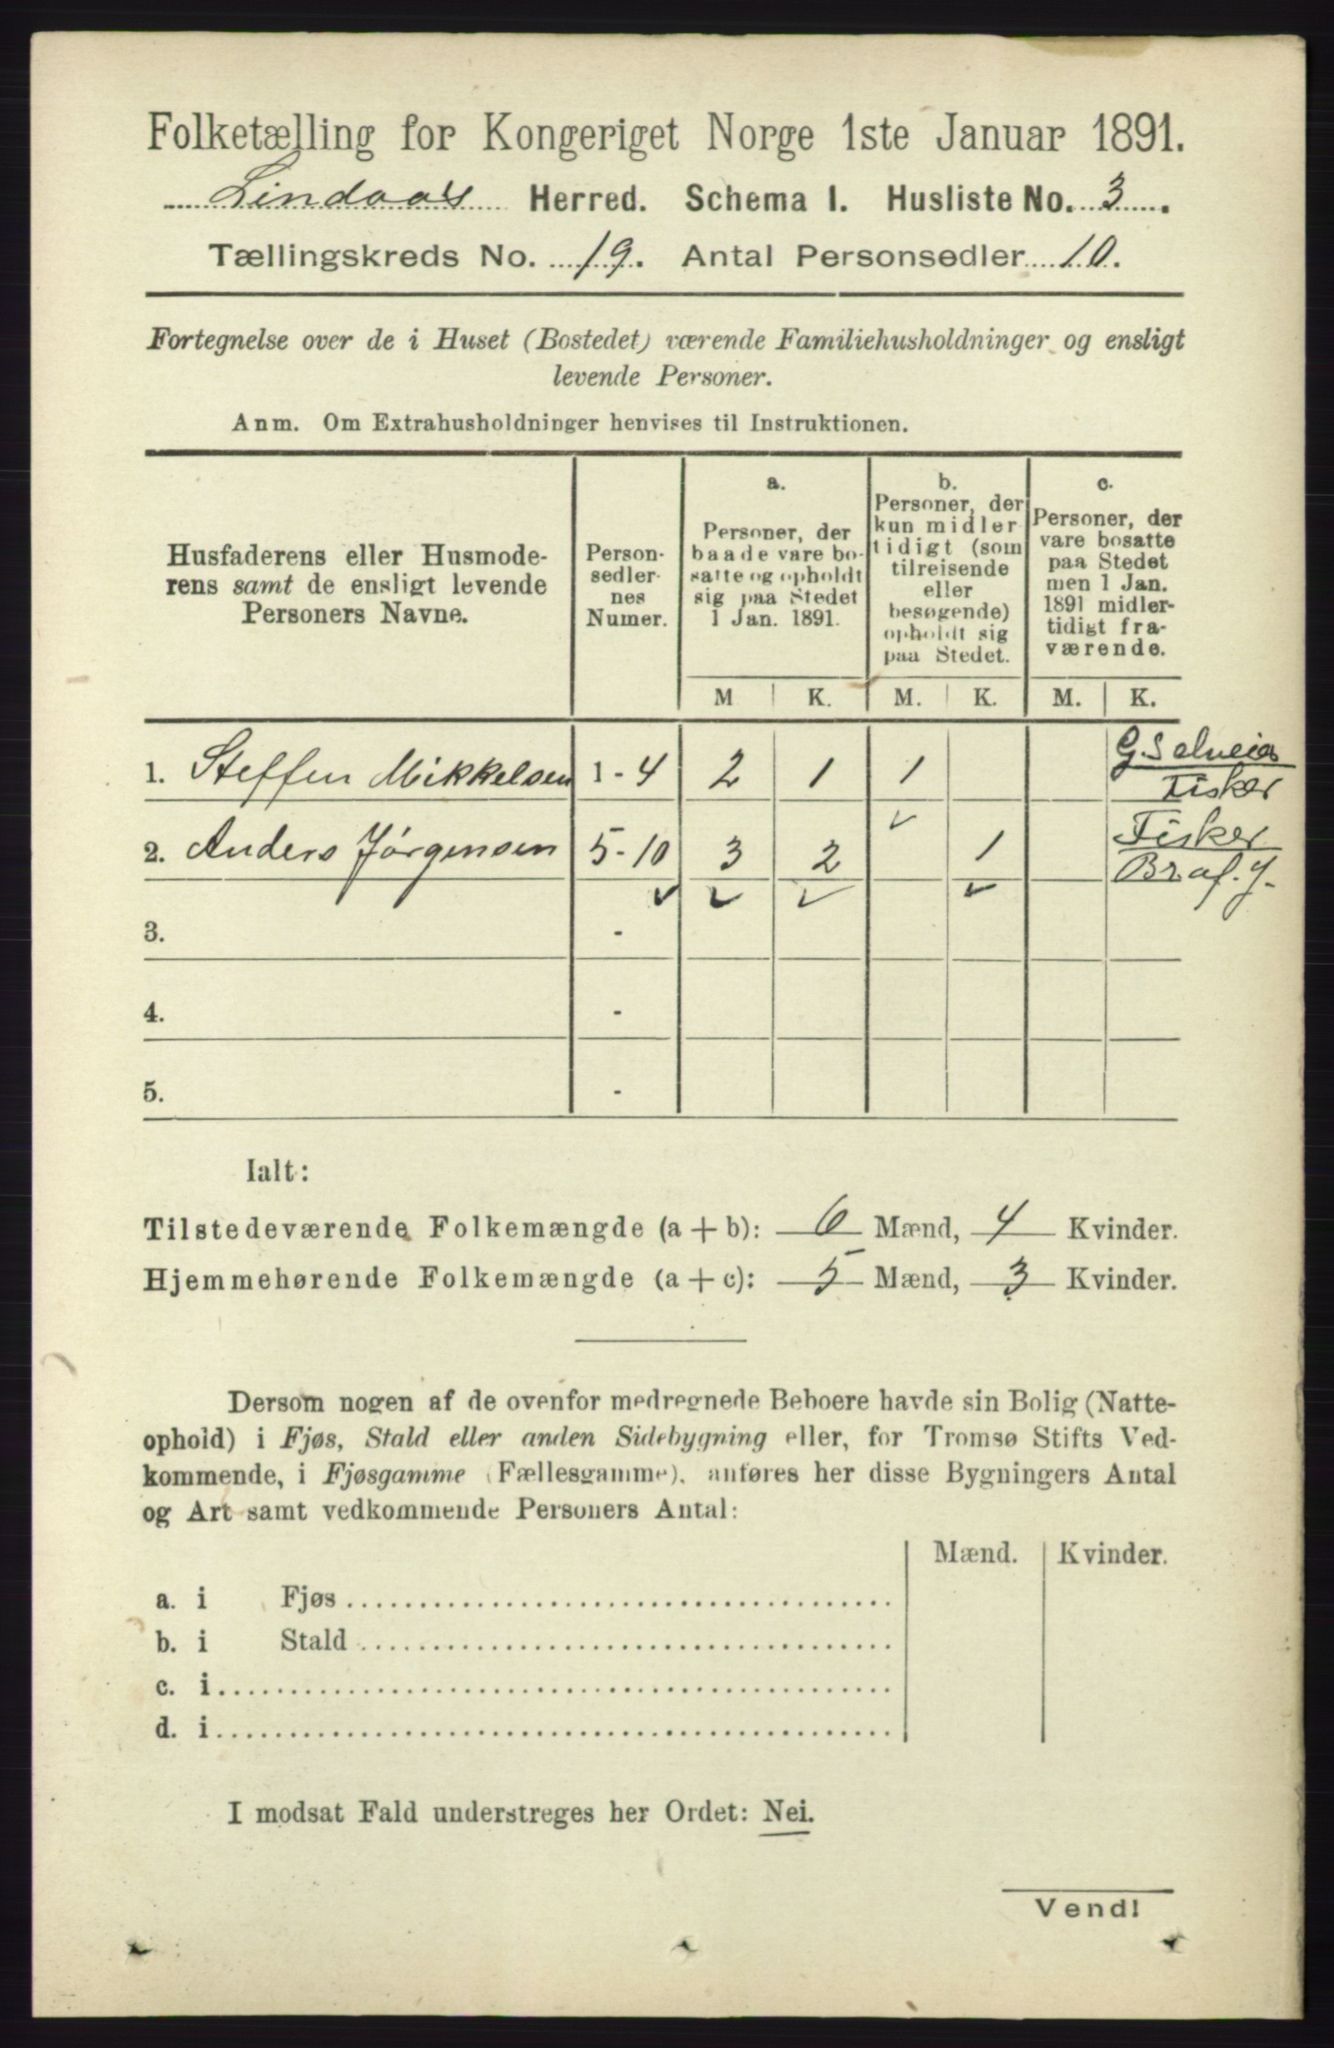 Folketælling for Kongeriget Norge 1ste Januar 1891.
Lindaas Herred. Schema I. Husliste No. 3.
Tællingskreds No. 19. Antal Personsedler 10.
Fortegnelse over de i Huset (Bostedet) værende Familiehusholdninger og ensligt
levende Personer.
Anm. Om Extrahusholdninger henvises til Instruktionen.
Husfaderens eller Husmode-
rens samt de ensligt levende
Personers Navne.
Person-
sedler-
nes
Numer.
a.
Personer, der
baade vare bo-
satte og opholdt
sig paa Stedet
1 Jan. 1891.
b.
Personer, der
kun midler
tidigt (som
tilreisende
eller
besøgende)
opholdt sig
paa Stedet.
c.
Personer, der
vare bosatte
paa Stedet
men 1 Jan.
1891 midler-
tidigt fra-
værende.
M K. M. K. M. K.
1. Steffen Mikkelsen 1 - 4 2 1 1 G. Selveier
Fisker
2. Anders Jørgensen 5 - 10 3 2 1 Fisker
3. -
4. -
5. -
Ialt:
Tilstedeværende Folkemængde (a + b): 6 Mænd, 4 Kvinder.
Hjemmehørende Folkemængde (a + c): 5 Mænd, 3 Kvinder.
Dersom nogen af de ovenfor medregnede Beboere havde sin Bolig (Natte-
ophold) i Fjøs, Stald eller anden Sidebygning eller, for Tromsø Stifts Ved-
kommende, i Fjøsgamme (Fællesgamme), anføres her disse Bygningers Antal
og Art samt vedkommende Personers Antal:
Mænd. Kvinder.
a. i Fjøs
b. i Stald
c. i
d. i
I modsat Fald understreges her Ordet: Nei.
Vend!